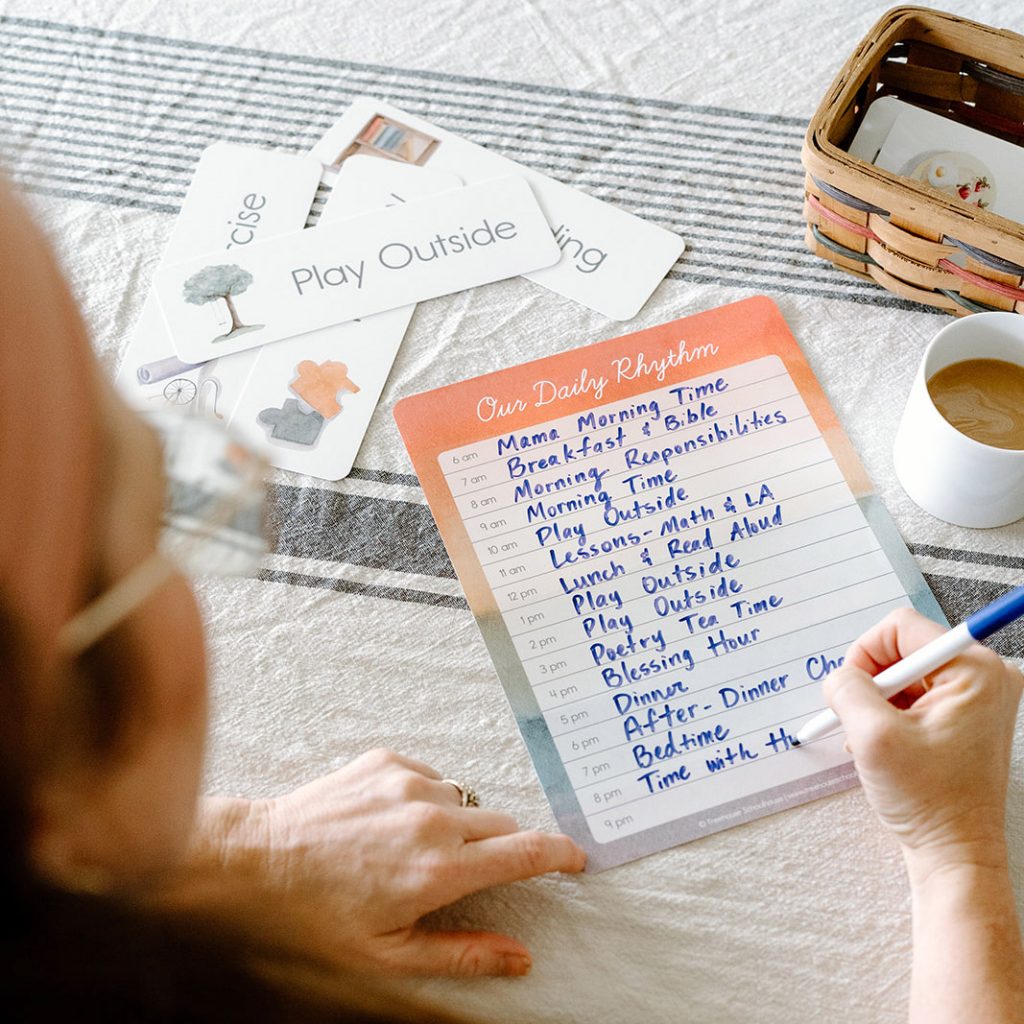 rcise
Play Outside
ing
Our Daily Rhythm
6 am Mama Morning Time
7 am Breakfast & Bible
8 am Morning Responsibilities
9 am Morning Time
10 am Play Outside
11 am Lessons- Math & LA
12 pm Lunch & Read Aloud
1 pm Play Outside
2 pm Play Outside
3 pm Poetry Tea Time
4 pm Blessing Hour
5 pm Dinner
6 pm After-Dinner Ch
7 pm Bedtime
8 pm Time with Hu
9 pm
© Treehouse Schoolhouse